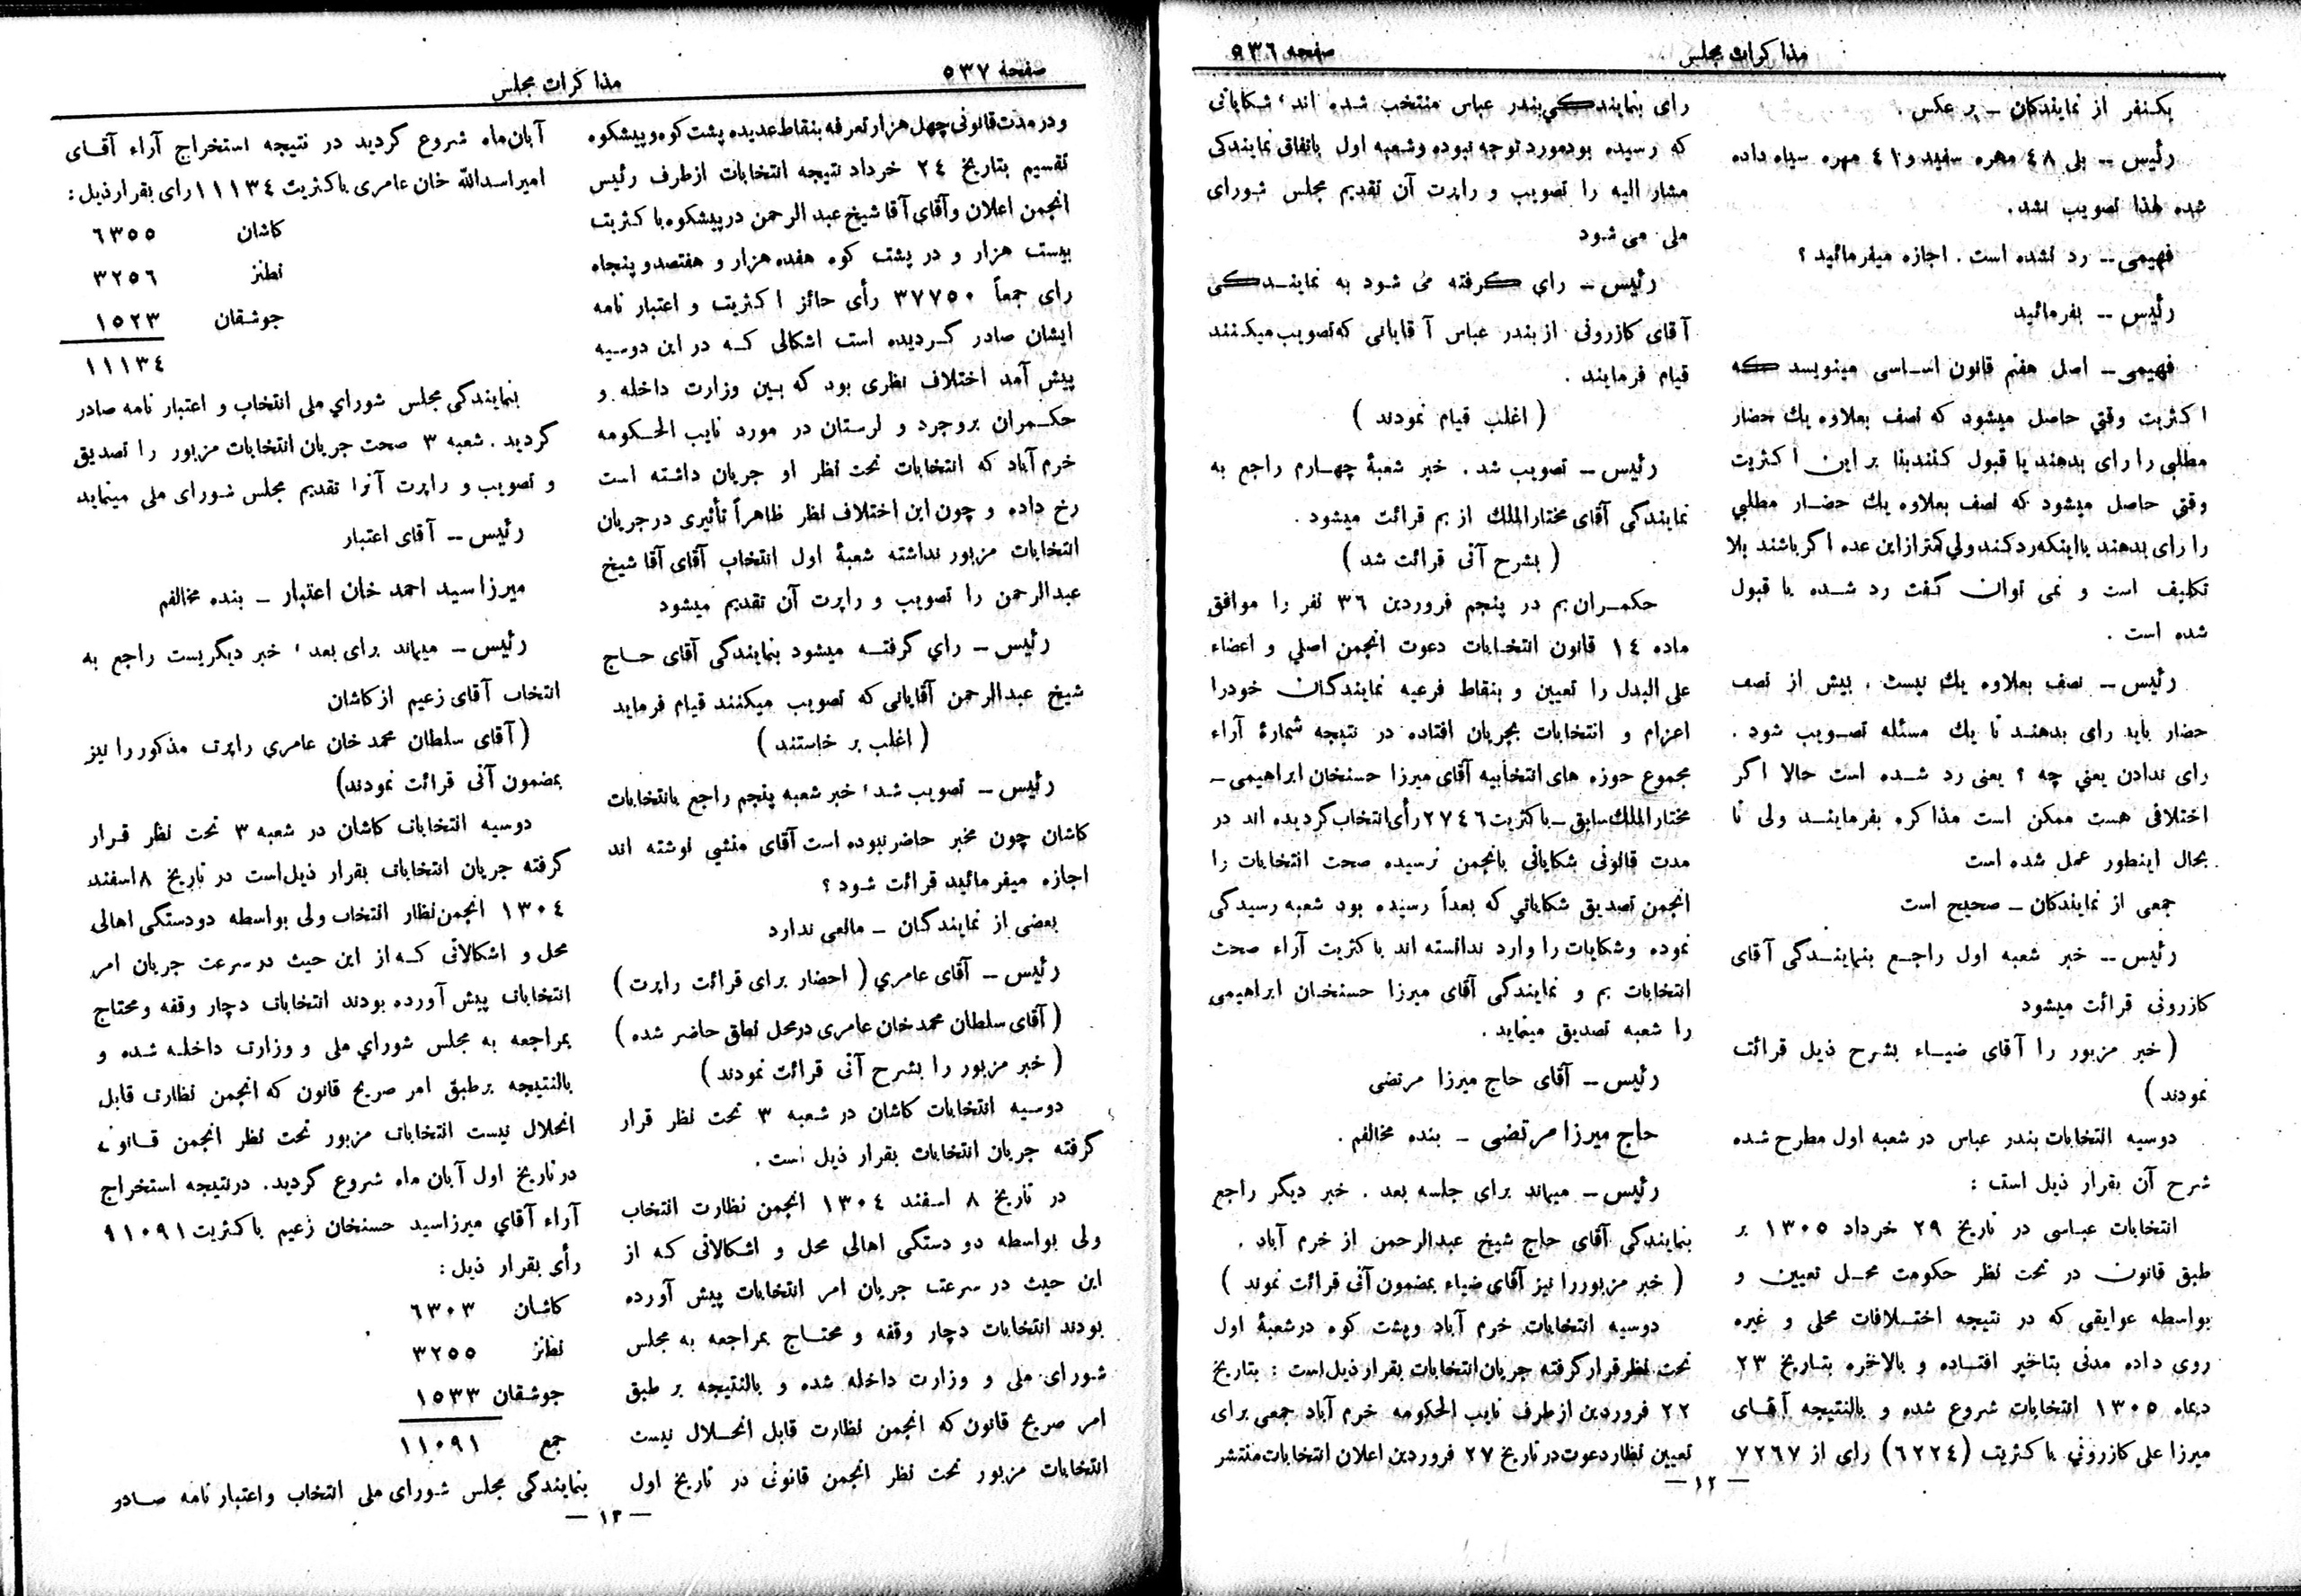 مذاکرات مجلس
صفحه ۵۳۶
یکنفر از نمایندکان – بر عکس .
رئیس – بلی ۴۸ مهره سفید و ۴۱ مهره سیاه داده
شده لهذا تصویب نشد.
فهیمی – رد نشده است . اجازه میفرمائید ؟
رئیس – بفرمائید
فهیمی – اصل هفتم قانون اساسی مینویسد که
اکثریت وقتی حاصل میشود که نصف بعلاوه یك حضار
مطلبی را رای بدهند یا قبول کنند بنا بر این اکثریت
وقتی حاصل میشود که نصف بعلاوه یك حضار مطلبي
را رای بدهند یا اینکه رد کنند ولي کمتر از این عده اگر باشند بلا
تکلیف است و نمی توان گفت رد شده یا قبول
شده است .
رئیس – نصف بعلاوه یك نیست . بیش از نصف
حضار باید رای بدهند تا یك مسئله تصویب شود .
رای ندادن یعني چه ؟ یعنی رد شده است حالا اگر
اختلافی هست ممکن است مذاکره بفرمایند ولی تا
بحال اینطور عمل شده است
جمعی از نمایندکان – صحیح است
رئیس – خبر شعبه اول راجع بنمایندگی آقای
کازرونی قرائت میشود
( خبر مزبور را آقای ضیاء بشرح ذیل قرائت
نمودند )
دوسیه انتخابات بندر عباس در شعبه اول مطرح شده
شرح آن بقرار ذیل است :
انتخابات عباسی در تاریخ ۲۹ خرداد ۱۳۰۵ بر
طبق قانون در تحت نظر حکومت محل تعیین و
بواسطه عوایقی که در نتیجه اختلافات محلی و غیره
روی داده مدتی بتاخیر افتاده و بالاخره بتاریخ ۲۳
دیماه ۱۳۰۵ انتخابات شروع شده و بالنتیجه آقای
میرزا علی کازرونی با کثریت (۶۲۲۴) رای از ۷۲۶۷
رای بنمایندگي بندر عباس منتخب شده اند ، شکایاتی
که رسیده بود مورد توجه نبوده و شعبه اول باتفاق نمایندکی
مشار الیه را تصویب و راپرت آن تقدیم مجلس شورای
ملی می شود
رئیس – رای گرفته می شود به نمایندگی
آقای کازرونی از بندر عباس آقایانی که تصویب میکنند
قیام فرمایند .
( اغلب قیام نمودند )
رئیس – تصویب شد . خبر شعبهٔ چهارم راجع به
نمایندگی آقای مختارالملك از بم قرائت میشود .
( بشرح آتی قرائت شد )
حکمران بم در پنجم فروردین ۳۶ نفر را موافق
ماده ۱۴ قانون انتخابات دعوت انجمن اصلي و اعضاء
علی البدل را تعیین و بنقاط فرعیه نمایندکان خودرا
اعزام و انتخابات بجریان افتاده در نتیجه شمارهٔ آراء
مجموع حوزه های انتخابیه آقای میرزا حسنخان ابراهیمی –
مختار الملك سابق – باکثریت ۲۷۴۶ رأی انتخاب گردیده اند در
مدت قانونی شکایاتی بانجمن نرسیده صحت انتخابات را
انجمن تصدیق شکایاتي که بعداً رسیده بود شعبه رسیدگی
نموده و شکایات را وارد ندانسته اند با کثریت آراء صحت
انتخابات بم و نمایندگی آقای میرزا حسنخان ابراهیمی
را شعبه تصدیق مینماید .
رئیس – آقای حاج میرزا مرتضی
حاج میرزا مرتضی – بنده مخالفم .
رئیس – میماند برای جلسه بعد . خبر دیگر راجع
بنمایندگی آقای حاج شیخ عبدالرحمن از خرم آباد .
( خبر مزبور را نیز آقای ضیاء بمضمون آتی قرائت نموند )
دوسیه انتخابات خرم آباد و پشت کوه در شعبهٔ اول
تحت نظر قرار گرفته جریان انتخابات بقرار ذیل است : بتاریخ
۲۲ فروردین از طرف نایب الحکومه خرم آباد جمعی برای
تعیین نظار دعوت در تاریخ ۲۷ فروردین اعلان انتخابات منتشر
— ۱۲ —
صفحه ۵۳۷
مذاکرات مجلس
و در مدت قانونی چهل هزار تعرفه بنقاط عدیده پشت کوه و پیشکوه
تقسیم بتاریخ ۲۴ خرداد نتیجه انتخابات از طرف رئیس
انجمن اعلان و آقای آقا شیخ عبد الرحمن در پیشکوه با کثریت
بیست هزار و در پشت کوه هفده هزار و هفتصد و پنجاه
رای جمعاً ۳۷۷۵۰ رأی حائز اکثریت و اعتبار نامه
ایشان صادر گردیده است اشکالی که در این دوسیه
پیش آمد اختلاف نظری بود که بین وزارت داخله و
حکمران بروجرد و لرستان در مورد نایب الحکومه
خرم آباد که انتخابات تحت نظر او جریان داشته است
رخ داده و چون این اختلاف نظر ظاهراً تأثیری در جریان
انتخابات مزبور نداشته شعبهٔ اول انتخاب آقای آقا شیخ
عبدالرحمن را تصویب و راپرت آن تقدیم میشود
رئیس – راي گرفته میشود بنمایندگی آقای حاج
شیخ عبدالرحمن آقایانی که تصویب میکنند قیام فرماید
( اغلب بر خاستند )
رئیس – تصویب شد ، خبر شعبه پنجم راجع بانتخابات
کاشان چون مخبر حاضر نبوده است آقای منشی نوشته اند
اجازه میفرمائید قرائت شود ؟
بعضی از نمایندگان – مانعی ندارد
رئیس – آقای عامري ( احضار برای قرائت راپرت )
( آقای سلطان محمد خان عامری در محل نطق حاضر شده )
( خبر مزبور را بشرح آتی قرائت نمودند )
دوسیه انتخابات کاشان در شعبه ۳ تحت نظر قرار
گرفته جریان انتخابات بقرار ذیل است .
در تاریخ ۸ اسفند ۱۳۰۴ انجمن نظارت انتخاب
ولی بواسطه دو دستگی اهالی محل و اشکالاتی که از
این حیث در سرعت جریان امر انتخابات پیش آورده
بودند انتخابات دچار وقفه و محتاج بمراجعه به مجلس
شورای ملی و وزارت داخله شده و بالنتیجه بر طبق
امر صریح قانون که انجمن نظارت قابل انحلال نیست
انتخابات مزبور تحت نظر انجمن قانونی در تاریخ اول
آبان ماه شروع گردید در نتیجه استخراج آراء آقای
امیر اسدالله خان عامری باکثریت ۱۱۱۳۴ رای بقرار ذیل :
کاشان ۶۳۵۵
نطنز ۳۲۵۶
جوشقان ۱۵۲۳
۱۱۱۳۴
بنمایندگی مجلس شورای ملی انتخاب و اعتبار نامه صادر
گردید . شعبه ۳ صحت جریان انتخابات مزبور را تصدیق
و تصویب و راپرت آنرا تقدیم مجلس شورای ملی مینماید
رئیس – آقای اعتبار
میرزا سید احمد خان اعتبار – بنده مخالفم
رئیس – میماند برای بعد ، خبر دیگریست راجع به
انتخاب آقای زعیم از کاشان
( آقای سلطان محمد خان عامري راپرت مذکور را نیز
بمضمون آتی قرائت نمودند)
دوسیه انتخابات کاشان در شعبه ۳ تحت نظر قرار
گرفته جریان انتخابات بقرار ذیل است در تاریخ ۸ اسفند
۱۳۰۴ انجمن نظار انتخاب ولی بواسطه دودستگی اهالی
محل و اشکالاتی که از این حیث در سرعت جریان امر
انتخابات پیش آورده بودند انتخابات دچار وقفه و محتاج
بمراجعه به مجلس شورای ملی و وزارت داخله شده و
بالنتیجه بر طبق امر صریح قانون که انجمن نظارت قابل
انحلال نیست انتخابات مزبور تحت نظر انجمن قانونی
در تاریخ اول آبان ماه شروع گردید . در نتیجه استخراج
آراء آقای میرزا سید حسنخان زعیم باکثریت ۱۱۰۹۱
رأی بقرار ذیل :
کاشان ۶۳۰۳
نطانز ۳۲۵۵
جوشقان ۱۵۳۳
جمع ۱۱۰۹۱
بنمایندگی مجلس شورای ملی انتخاب و اعتبار نامه صادر
— ۱۳ —